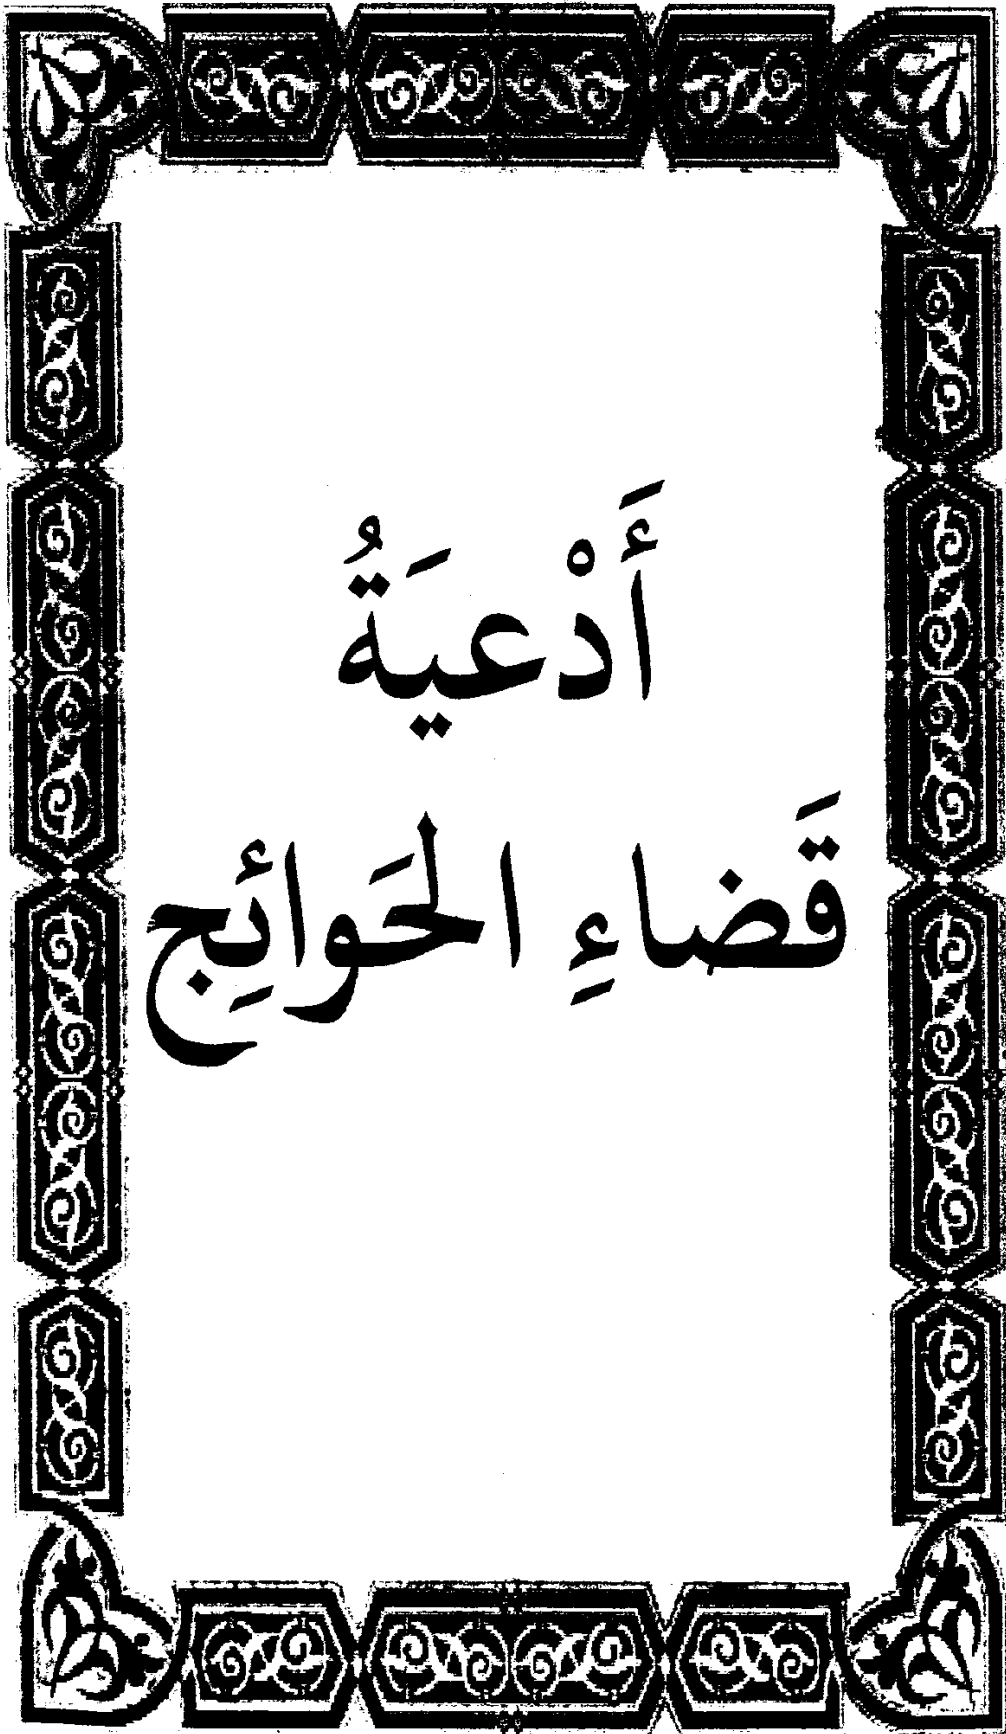 أَدْعيَةُ
قَضاءِ الحَوائِج